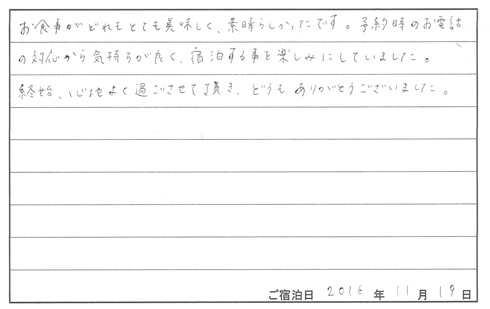 お食事がどれもとても美味しく、素晴らしかったです。予約時のお電話
の対応から気持ちが良く、宿泊する事を楽しみにしていました。
終始、心地よく過ごさせて頂き、どうもありがとうございました。
ご宿泊日 2016 年 11 月 19 日